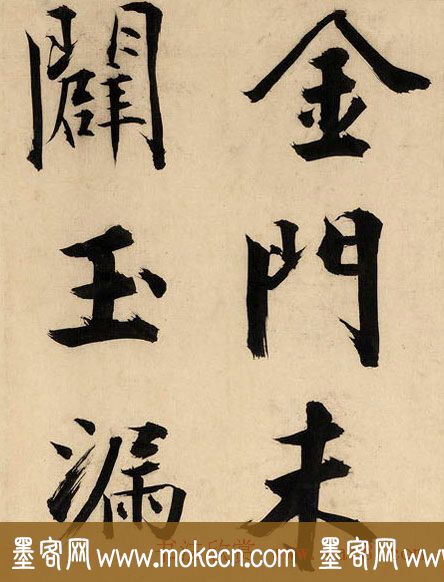 金門未
闢玉漏
墨客网 www.mokecn.com 墨客网